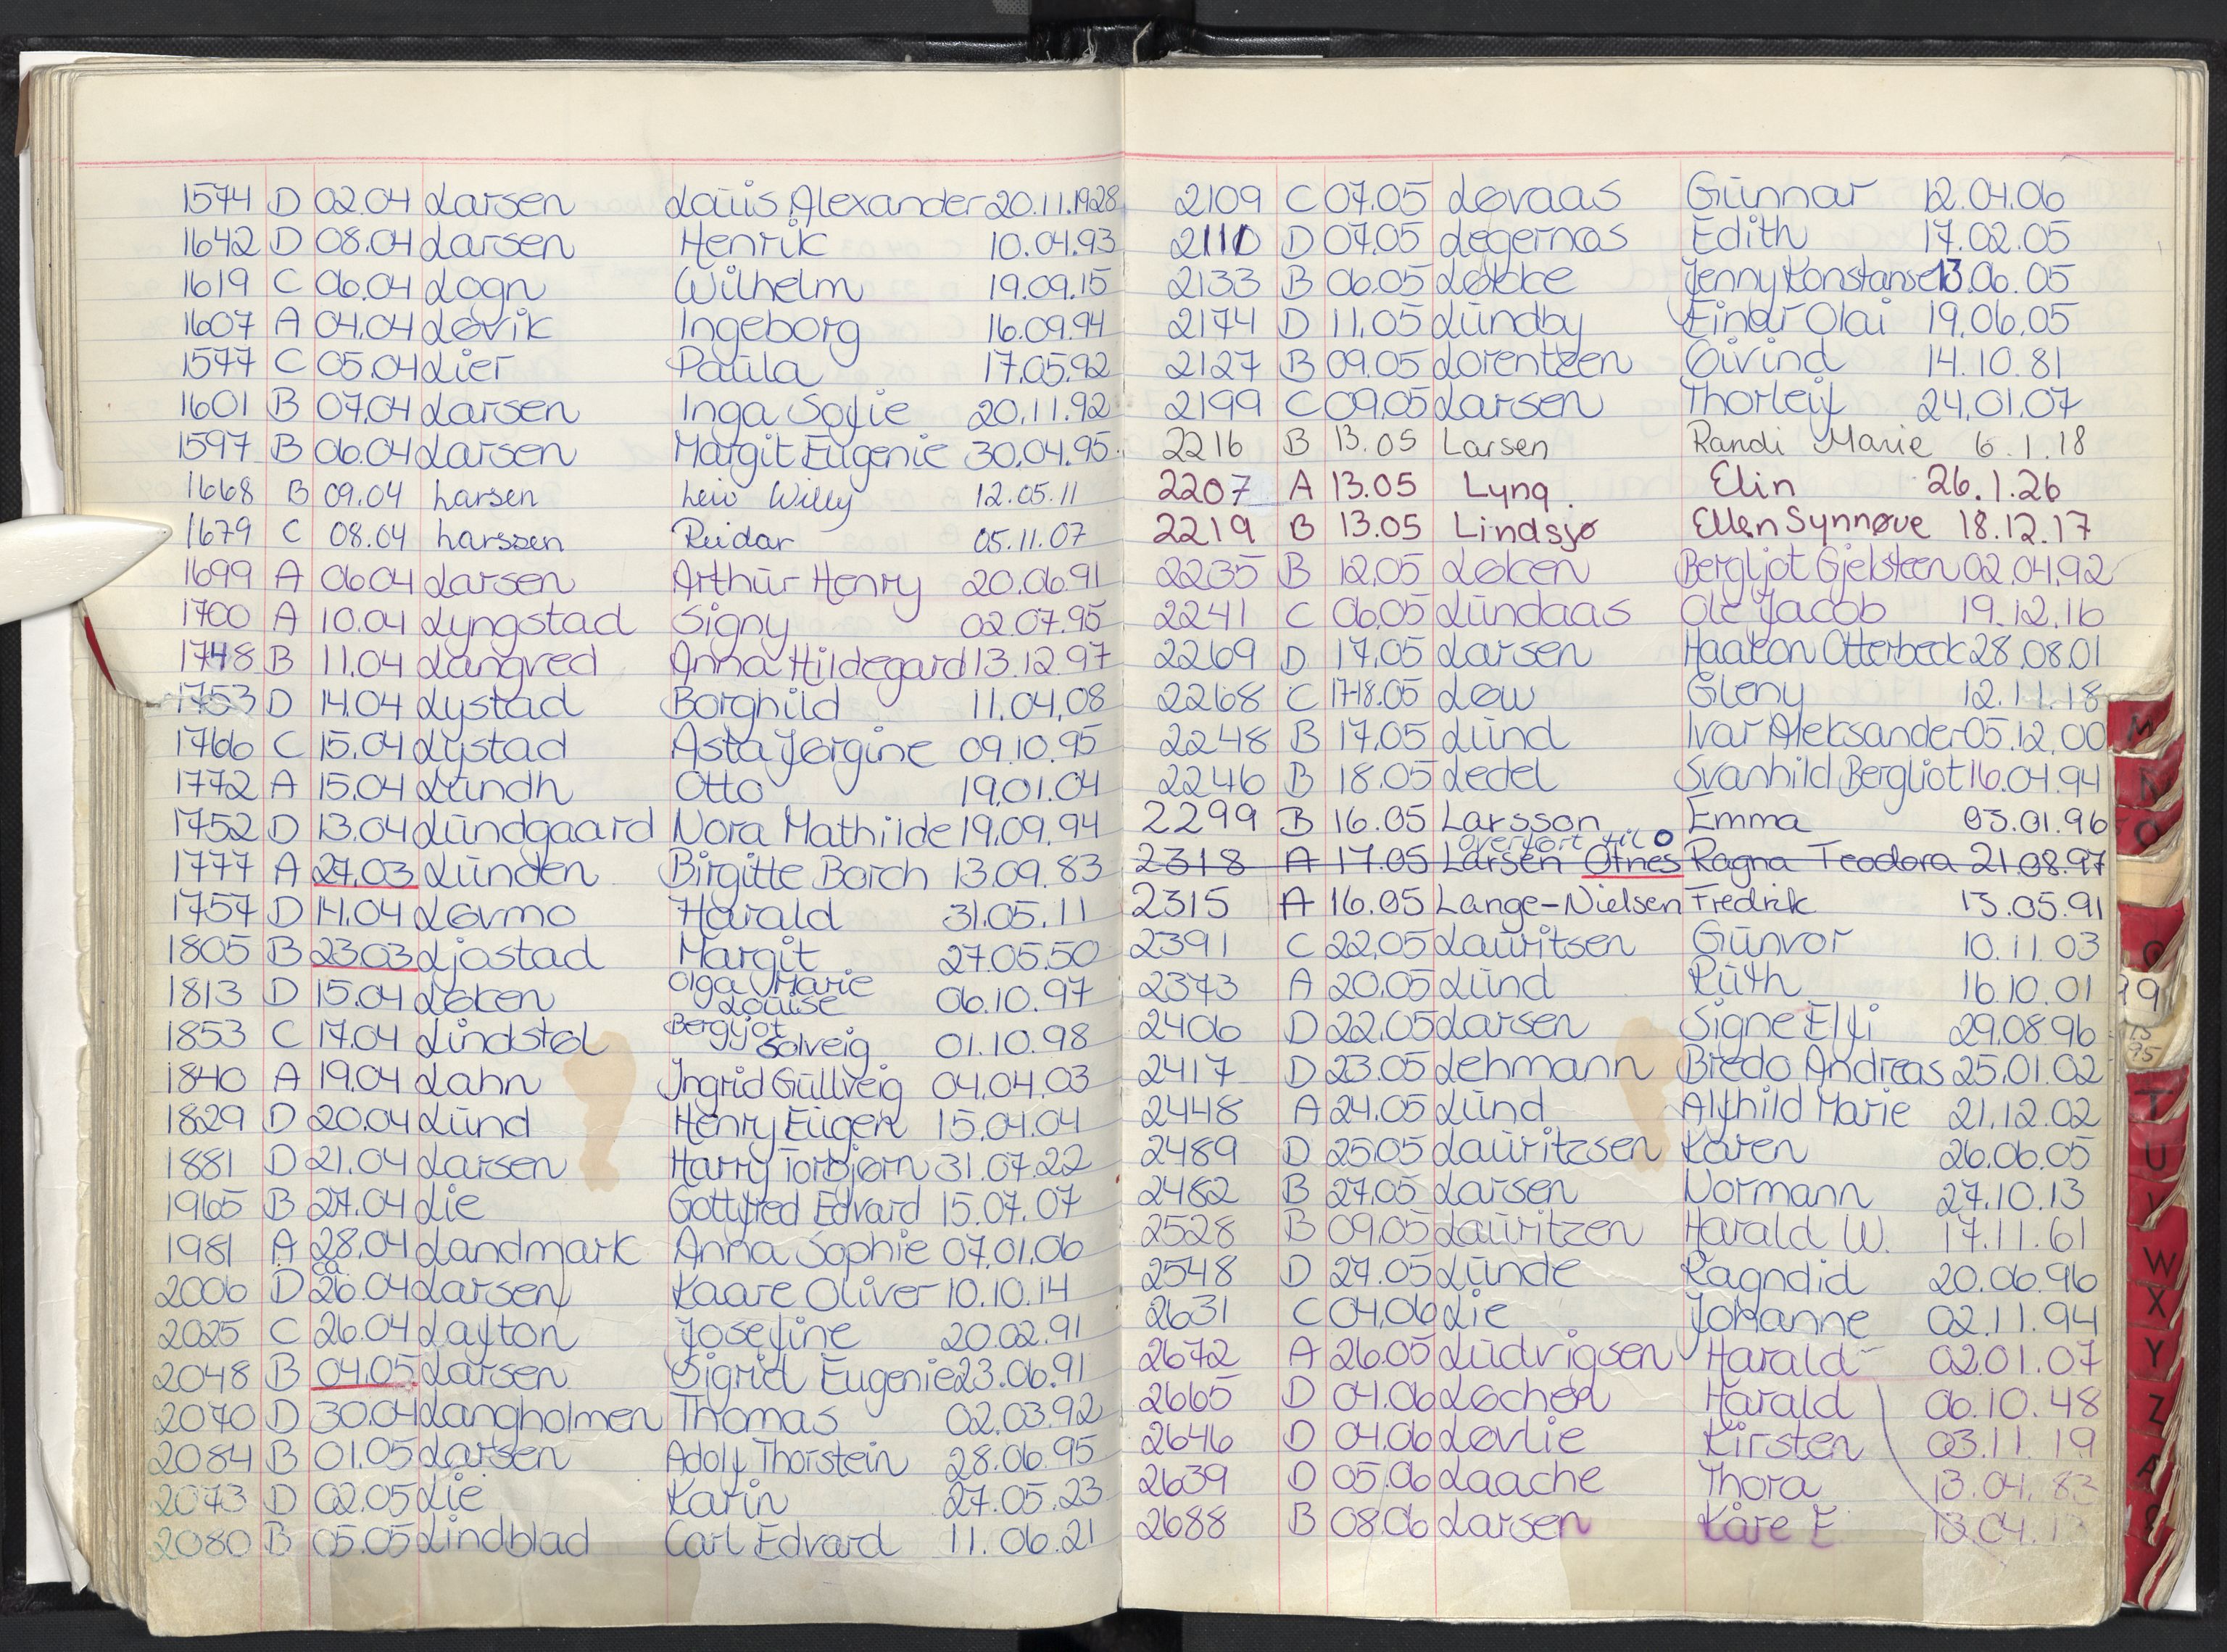 1574 D 02.04 Larsen Louis Alexander 20.11.1928
1642 D 08.04 Larsen Henrik 10.04.93
1619 C 06.04 Logn Wilhelm 19.09.15
1607 A 04.04 Løvik Ingeborg 16.09.94
1577 C 05.04 Lier Paula 17.05.92
1601 B 07.04 Larsen Inga Sofie 20.11.92
1597 B 06.04 Larsen Margit Eugenie 30.04.95
1668 B 09.04 Larsen Leiv Willy 12.05.11
1679 C 08.04 Larssen Reidar 05.11.07
1699 A 06.04 Larsen Arthur Henry 20.06.91
1700 A 10.04 Lyngstad Signy 02.07.95
1748 B 11.04 Langved Anna Hildegard 13.12.97
1753 D 14.04 Lystad Borghild 11.04.08
1766 C 15.04 Lystad Asta Jørgine 09.10.95
1772 A 15.04 Lundh Otto 19.01.04
1752 D 13.04 Lundgaard Nora Mathilde 19.09.94
1777 A 27.03 Lunden Birgitte Borch 13.09.83
1757 D 14.04 Løvmo Harald 31.05.11
1805 B 23.03 Ljøstad Margit 27.05.50
1813 D 15.04 Løken Olga Marie Louise 06.10.97
1853 C 17.04 Lindstøl Bergljot Solveig 01.10.98
1840 A 19.04 Lahn Ingrid Gullveig 04.04.03
1829 D 20.04 Lund Henry Eugen 15.04.04
1881 D 21.04 Larsen Harry Torbjørn 31.07.22
1965 B 27.04 Lie Gottfred Edvard 15.07.07
1981 A 28.04 Landmark Anna Sophie 07.01.06
2006 D ca 26.04 Larsen Kaare Oliver 10.10.14
2025 C 26.04 Layton Josefine 20.02.91
2048 B 04.05 Larsen Sigrid Eugenie 23.06.91
2070 D 30.04 Langholmen Thomas 02.03.92
2084 B 01.05 Larsen Adolf Thorstein 28.06.95
2073 D 02.05 Lie Karin 27.05.23
2080 B 05.05 Lindblad Carl Edvard 11.06.21
2109 C 07.05 Løvaas Gunnar 12.04.06
2110 D 07.05 Legernæs Edith 17.02.05
2133 B 06.05 Løkke Jenny Konstanse 13.06.05
2174 D 11.05 Lundby Einar Olai 19.06.05
2127 B 09.05 Lorentzen Øivind 14.10.81
2199 C 09.05 Larsen Thorleif 24.01.07
2216 B 13.05 Larsen Randi Marie 6.1.18
2207 A 13.05 Lyng Elin 26.1.26
2219 B 13.05 Lindsjø Ellen Synnøve 18.12.17
2235 B 12.05 Løken Bergljot Gjelsteen 02.04.92
2241 C 06.05 Lundaas Ole Jacob 19.12.16
2269 D 17.05 Larsen Haakon Otterbeck 28.08.01
2268 C 17-18.05 Løw Gleny 12.11.18
2248 B 17.05 Lund Ivar Aleksander 05.12.00
2246 B 18.05 Ledel Svanhild Bergliot 16.04.94
2299 B 16.05 Larsson Emma 03.01.96
overført til O
2318 A 17.05 Larsen Ofnes Ragna Teodora 21.08.97
2315 A 16.05 Lange-Nielsen Fredrik 13.05.91
2391 C 22.05 Lauritsen Gunvor 10.11.03
2373 A 20.05 Lund Ruth 16.10.01
2406 D 22.05 Larsen Signe Elfi 29.08.96
2417 D 23.05 Lehmann Bredo Andreas 25.01.02
2448 A 24.05 Lund Alfhild Marie 21.12.02
2489 D 25.05 Lauritzsen Karen 26.06.05
2462 B 27.05 Larsen Normann 27.10.13
2528 B 09.05 Lauritzen Harald W. 17.11.61
2548 D 27.05 Lunde Ragndid 20.06.96
2631 C 04.06 Lie Johanne 02.11.94
2672 A 26.05 Ludvigsen Harald 02.01.07
2665 D 04.06 Løchen Harald 06.10.48
2646 D 04.06 Løvlie Kirsten 03.11.19
2639 D 05.06 Laache Thora 13.04.83
2688 B 08.06 Larsen Kåre E 13.04.
M
O
T
U
V
W
X
Y
Z